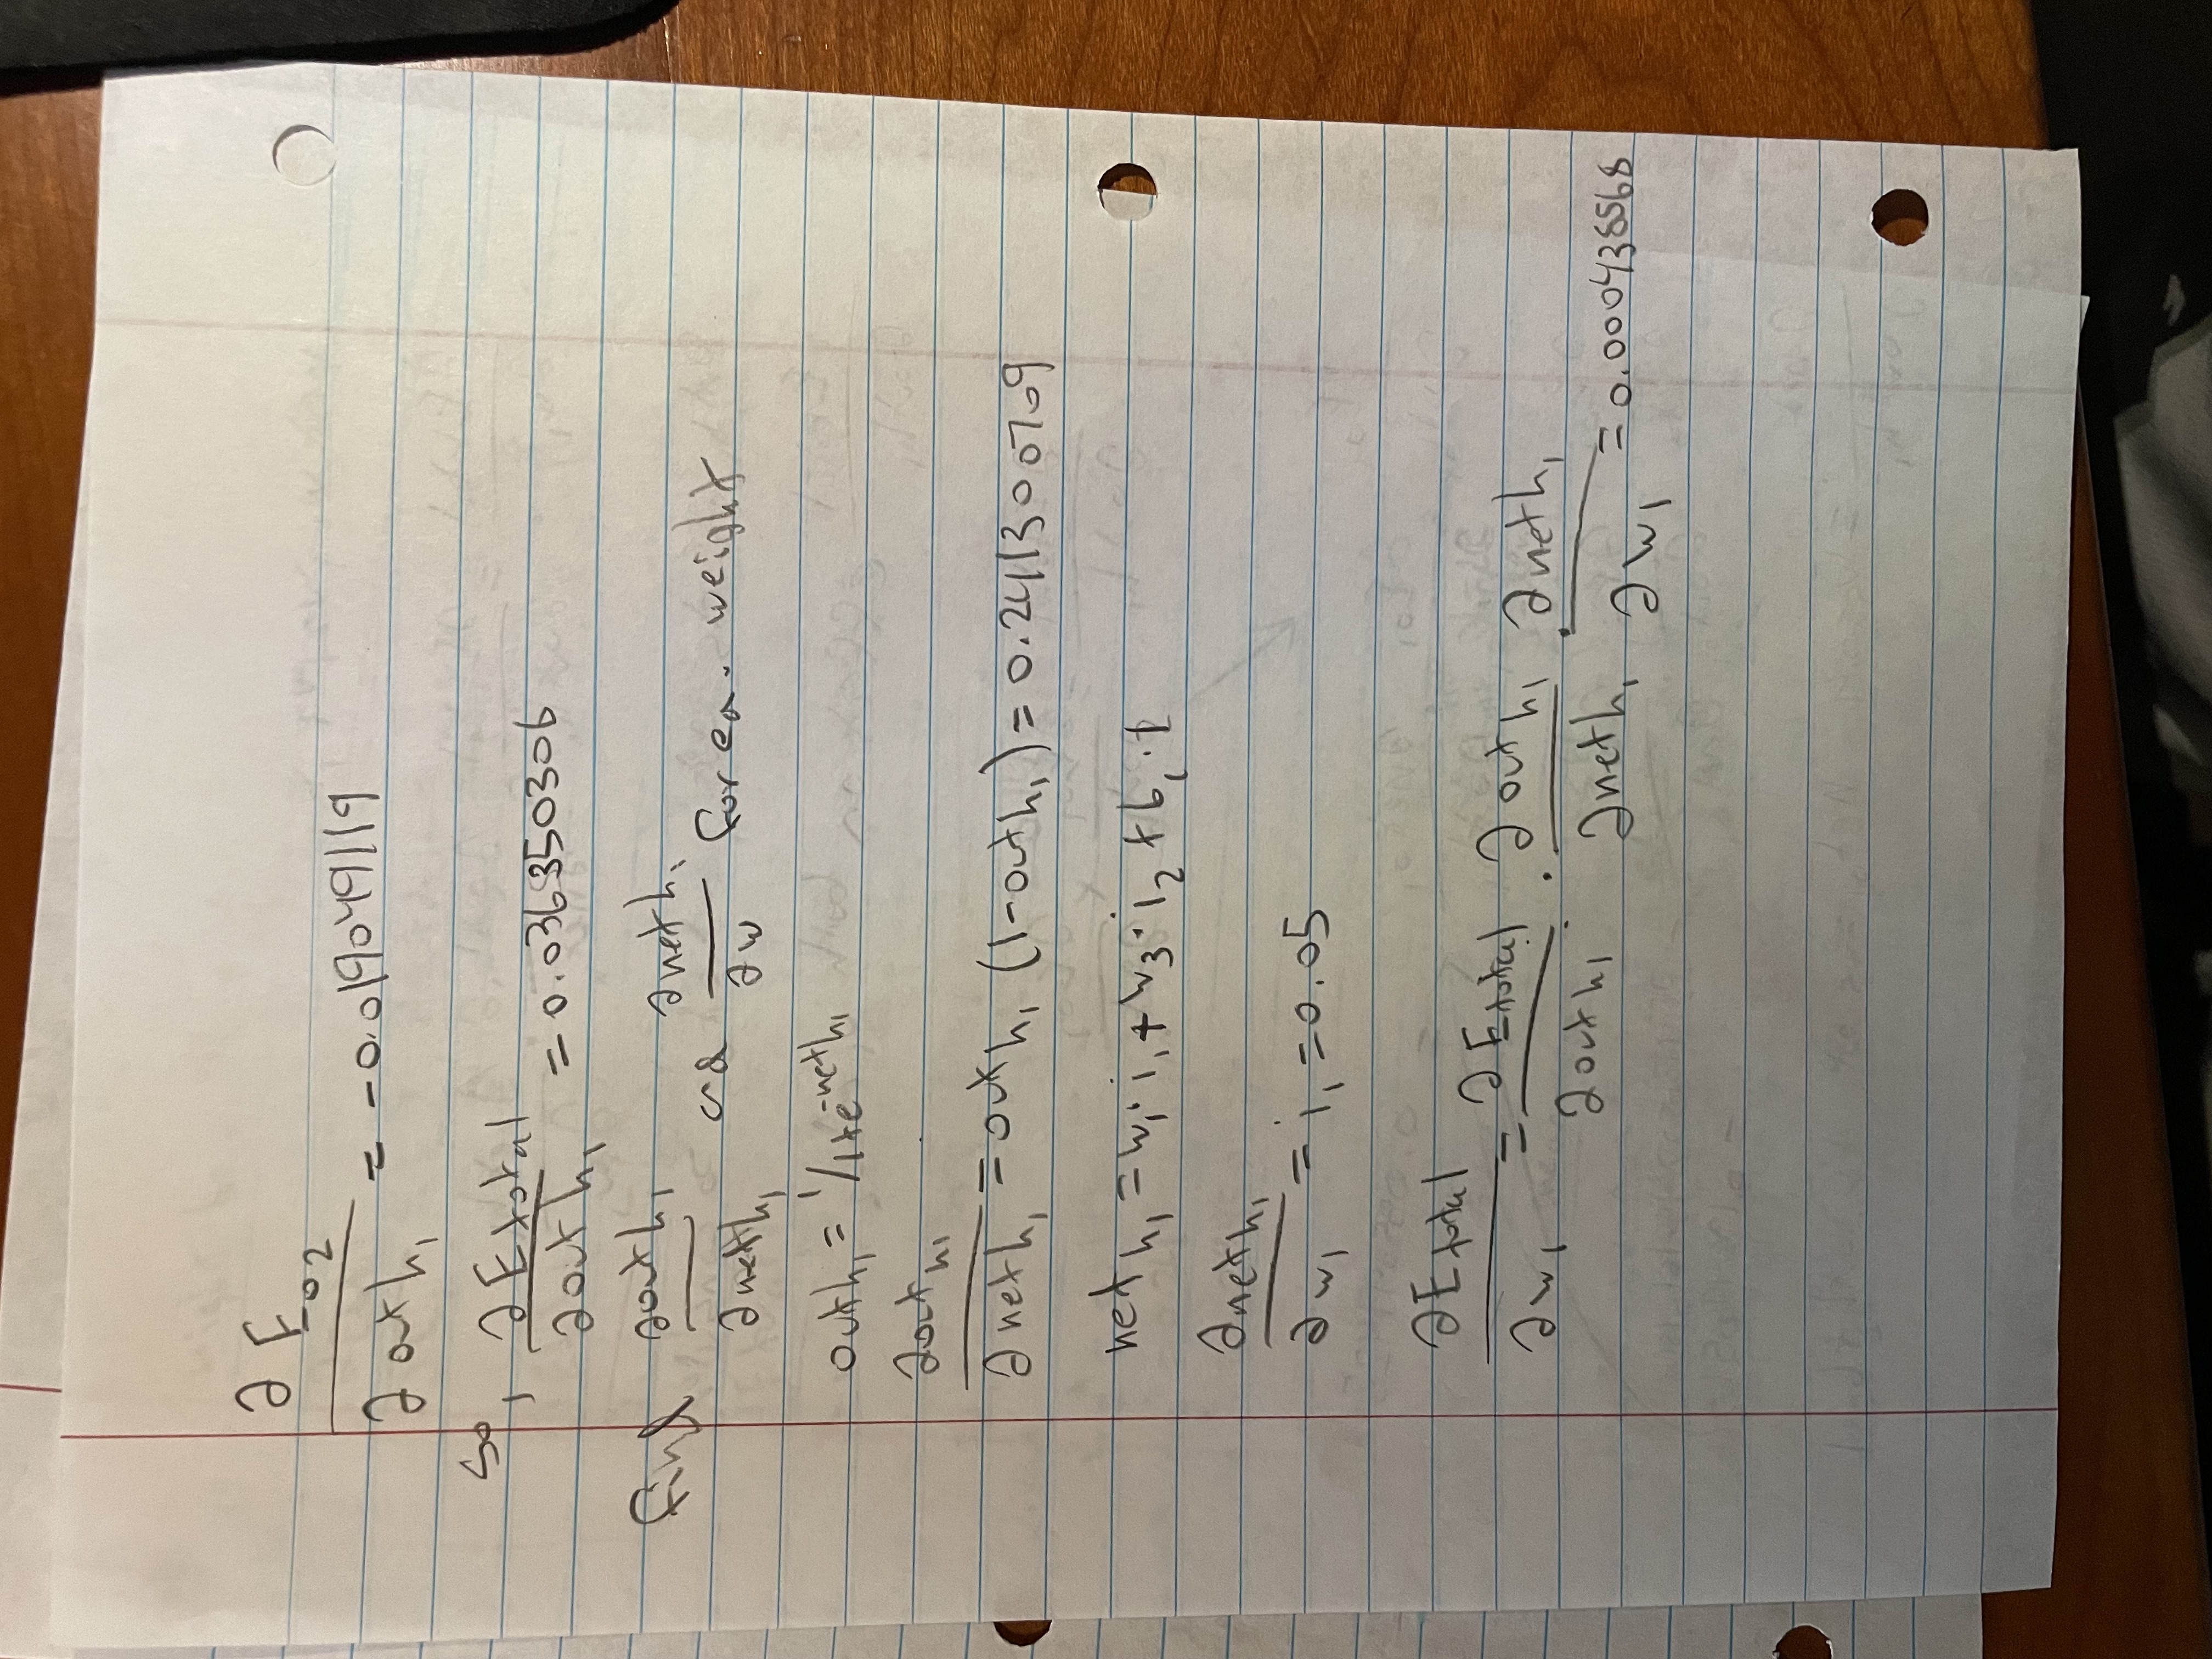 ∂E_o2 / ∂out h₁ = -0.019049119
So, ∂E total / ∂out h₁ = 0.036350306
find ∂out h₁ / ∂net h₁ and ∂net h₁ / ∂w for ea. weight
out h₁ = 1/1+e^-net h₁
∂out h₁ / ∂net h₁ = out h₁ (1-out h₁) = 0.241300709
net h₁ = w₁·i₁ + w₃·i₂ + b₁·1
∂net h₁ / ∂w₁ = i₁ = 0.05
∂E total / ∂w₁ = ∂E total / ∂out h₁ · ∂out h₁ / ∂net h₁ · ∂net h₁ / ∂w₁ = 0.000438568